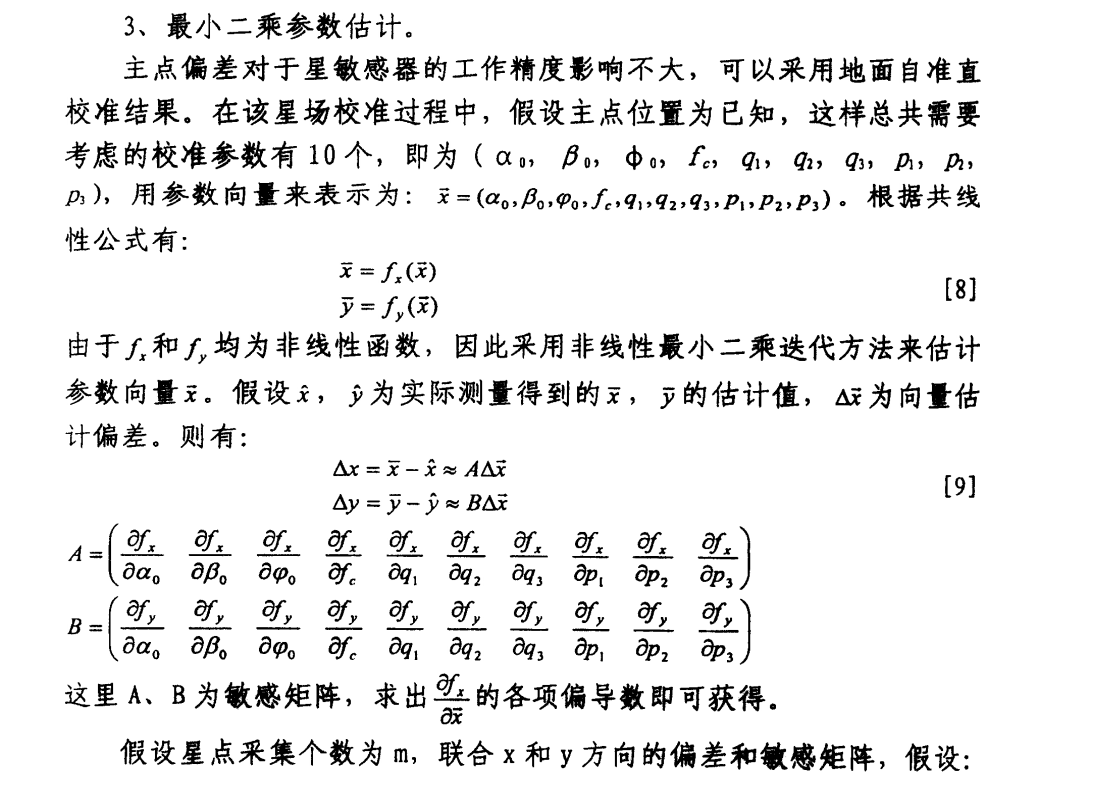 3、最小二乘参数估计。
主点偏差对于星敏感器的工作精度影响不大，可以采用地面自准直
校准结果。在该星场校准过程中，假设主点位置为已知，这样总共需要
考虑的校准参数有10个，即为（α₀，β₀，φ₀，f_c，q₁，q₂，q₃，p₁，p₂，
p₃），用参数向量来表示为：x⃗=(α₀,β₀,φ₀,f_c,q₁,q₂,q₃,p₁,p₂,p₃)。根据共线
性公式有：
x̄ = f_x(x⃗)
ȳ = f_y(x⃗) [8]
由于 f_x 和 f_y 均为非线性函数，因此采用非线性最小二乘迭代方法来估计
参数向量x⃗。假设x̂，ŷ为实际测量得到的x̄，ȳ的估计值，Δx⃗为向量估
计偏差。则有：
Δx = x̄ − x̂ ≈ AΔx⃗
Δy = ȳ − ŷ ≈ BΔx⃗ [9]
A = (∂f_x/∂α₀ ∂f_x/∂β₀ ∂f_x/∂φ₀ ∂f_x/∂f_c ∂f_x/∂q₁ ∂f_x/∂q₂ ∂f_x/∂q₃ ∂f_x/∂p₁ ∂f_x/∂p₂ ∂f_x/∂p₃)
B = (∂f_y/∂α₀ ∂f_y/∂β₀ ∂f_y/∂φ₀ ∂f_y/∂f_c ∂f_y/∂q₁ ∂f_y/∂q₂ ∂f_y/∂q₃ ∂f_y/∂p₁ ∂f_y/∂p₂ ∂f_y/∂p₃)
这里 A、B 为敏感矩阵，求出 ∂f_x/∂x⃗ 的各项偏导数即可获得。
假设星点采集个数为 m，联合 x 和 y 方向的偏差和敏感矩阵，假设：